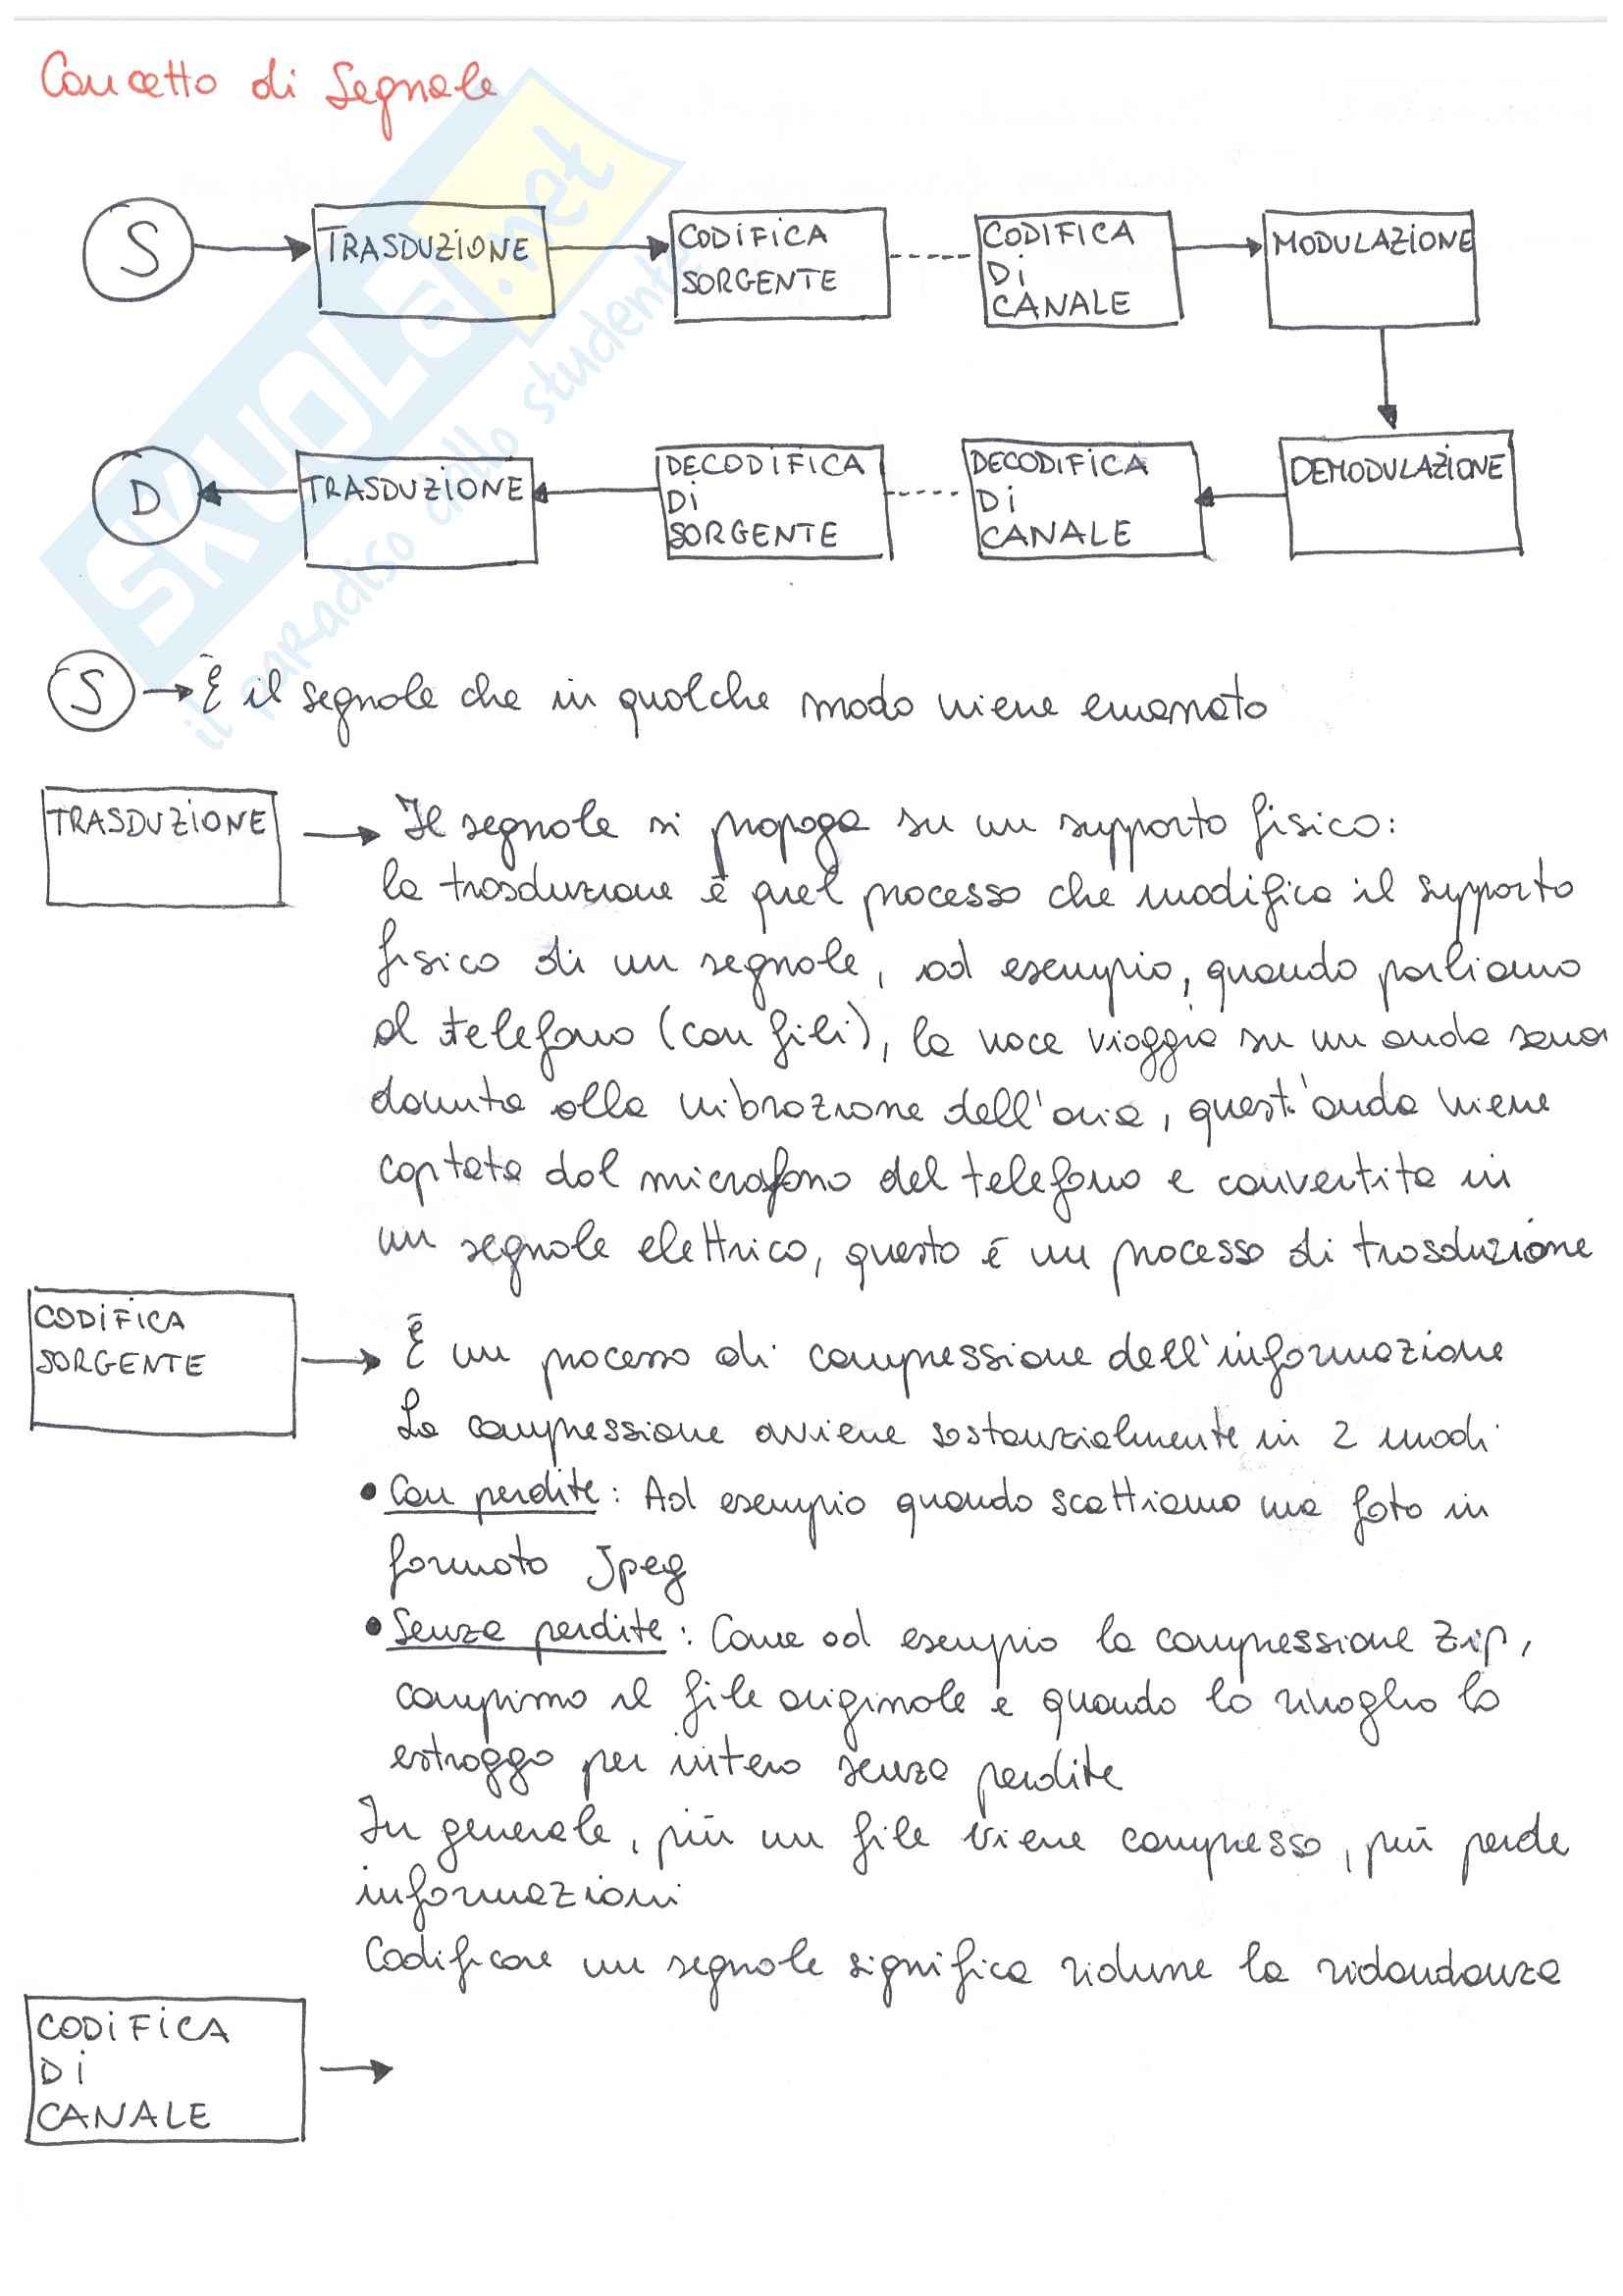 Concetto di Segnale
S
TRASDUZIONE
CODIFICA
SORGENTE
CODIFICA
DI
CANALE
MODULAZIONE
D
TRASDUZIONE
DECODIFICA
DI
SORGENTE
DECODIFICA
DI
CANALE
DEMODULAZIONE
SKUOLA.net
il paradiso dello studente
S → È il segnale che in qualche modo viene emanato
TRASDUZIONE → Il segnale si propaga su un supporto fisico:
la trasduzione è quel processo che modifica il supporto
fisico di un segnale, ad esempio, quando parliamo
al telefono (con fili), la voce viaggia su un onda sono
dovuta alla vibrazione dell'aria, quest'onda viene
captata dal microfono del telefono e convertita in
un segnale elettrico, questo è un processo di trasduzione
CODIFICA
SORGENTE → È un processo di compressione dell'informazione
La compressione avviene sostanzialmente in 2 modi
• Con perdite: Ad esempio quando scattiamo una foto in
formato Jpeg
• Senza perdite: Come ad esempio la compressione Zip,
comprimo il file originale e quando lo rivoglio lo
estraggo per intero senza perdite
In generale, più un file viene compresso, più perde
informazioni
Codificare un segnale significa ridurre la ridondanza
CODIFICA
DI →
CANALE